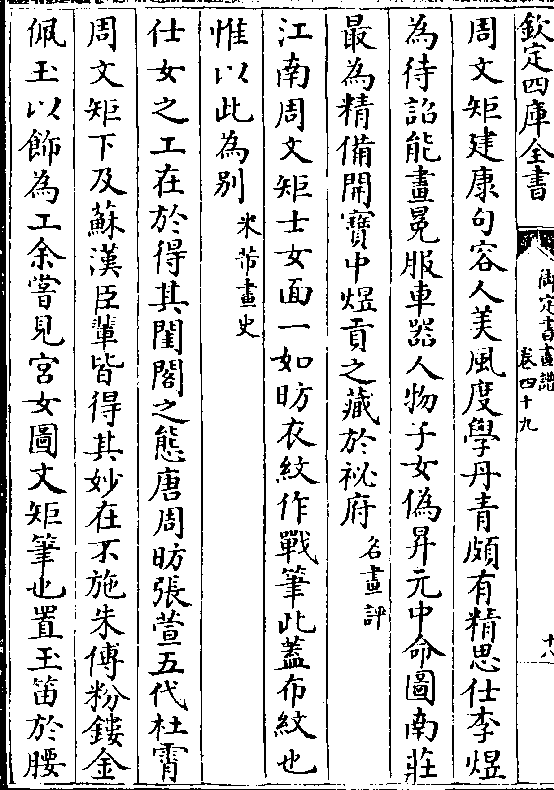 欽定四庫全書
御定書畫譜
卷四十九
十八
周文矩建康句容人美風度學丹青頗有精思仕李煜
為待詔能畫冕服車器人物子女偽昇元中命圖南莊
最為精備開寶中煜貢之藏於祕府名畫評
江南周文矩士女面一如昉衣紋作戰筆此蓋布紋也
惟以此為別米芾畫史
仕女之工在於得其閨閣之態唐周昉張萱五代杜霄
周文矩下及蘇漢臣輩皆得其妙在不施朱傅粉鏤金
佩玉以飾為工余嘗見宮女圖文矩筆也置玉笛於腰